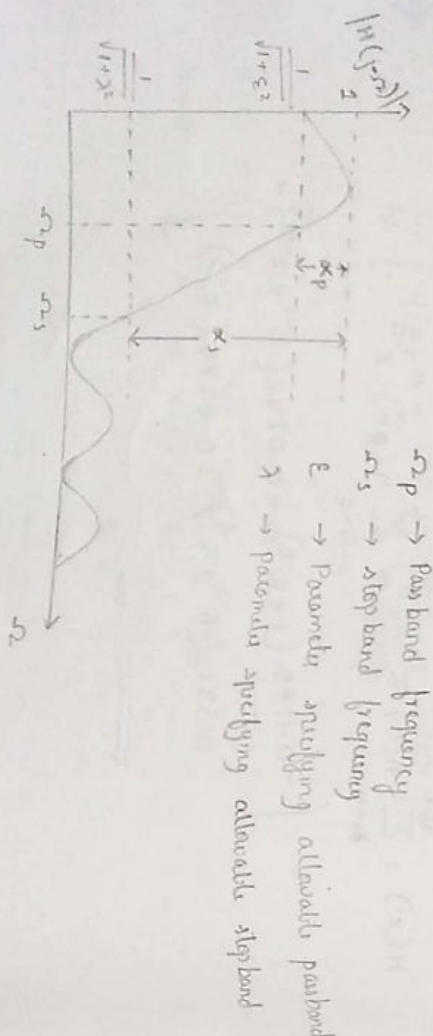 |H(jΩ)|
1
1/√(1+ε²)
1/√(1+λ²)
αp
αs
Ωp
Ωs
Ω
Ωp → Passband frequency
Ωs → stopband frequency
ε → Parameter specifying allowable passband
λ → parameter specifying allowable stopband